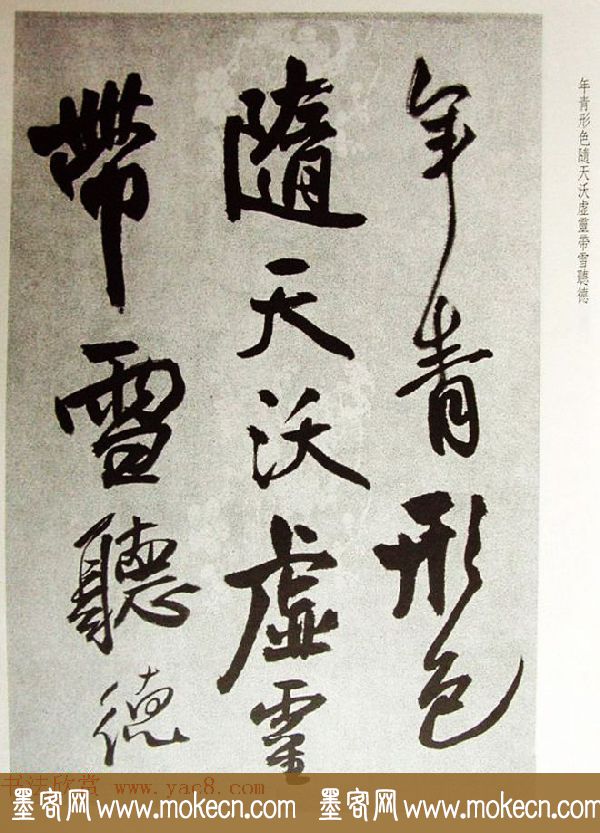 年青形色
隨天沃虛靈
帶雪聽德
年青形色隨天沃虛靈帶雪聽德
书法欣赏 www.yac8.com
墨客网 www.mokecn.com 墨客网 www.mokecn.com